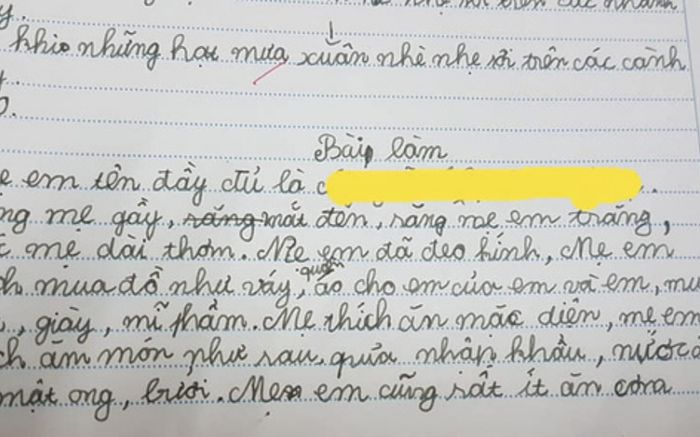 khio những hạt mưa xuân nhè nhẹ rơi trên các cành
Bài làm
em tên đầy đủ là
mẹ gầy, răng mắt đen, răng mẹ em trắng,
mẹ dài thơm. Mẹ em đã đeo kính, Mẹ em
mua đồ như váy, quần áo cho em của em và em,
, giày, mĩ phẩm. Mẹ thích ăn mặc diện, mẹ em
ăn món như rau, quả nhập khẩu, nước
mật ong, bưởi. Mẹ em cũng rất ít ăn cơm